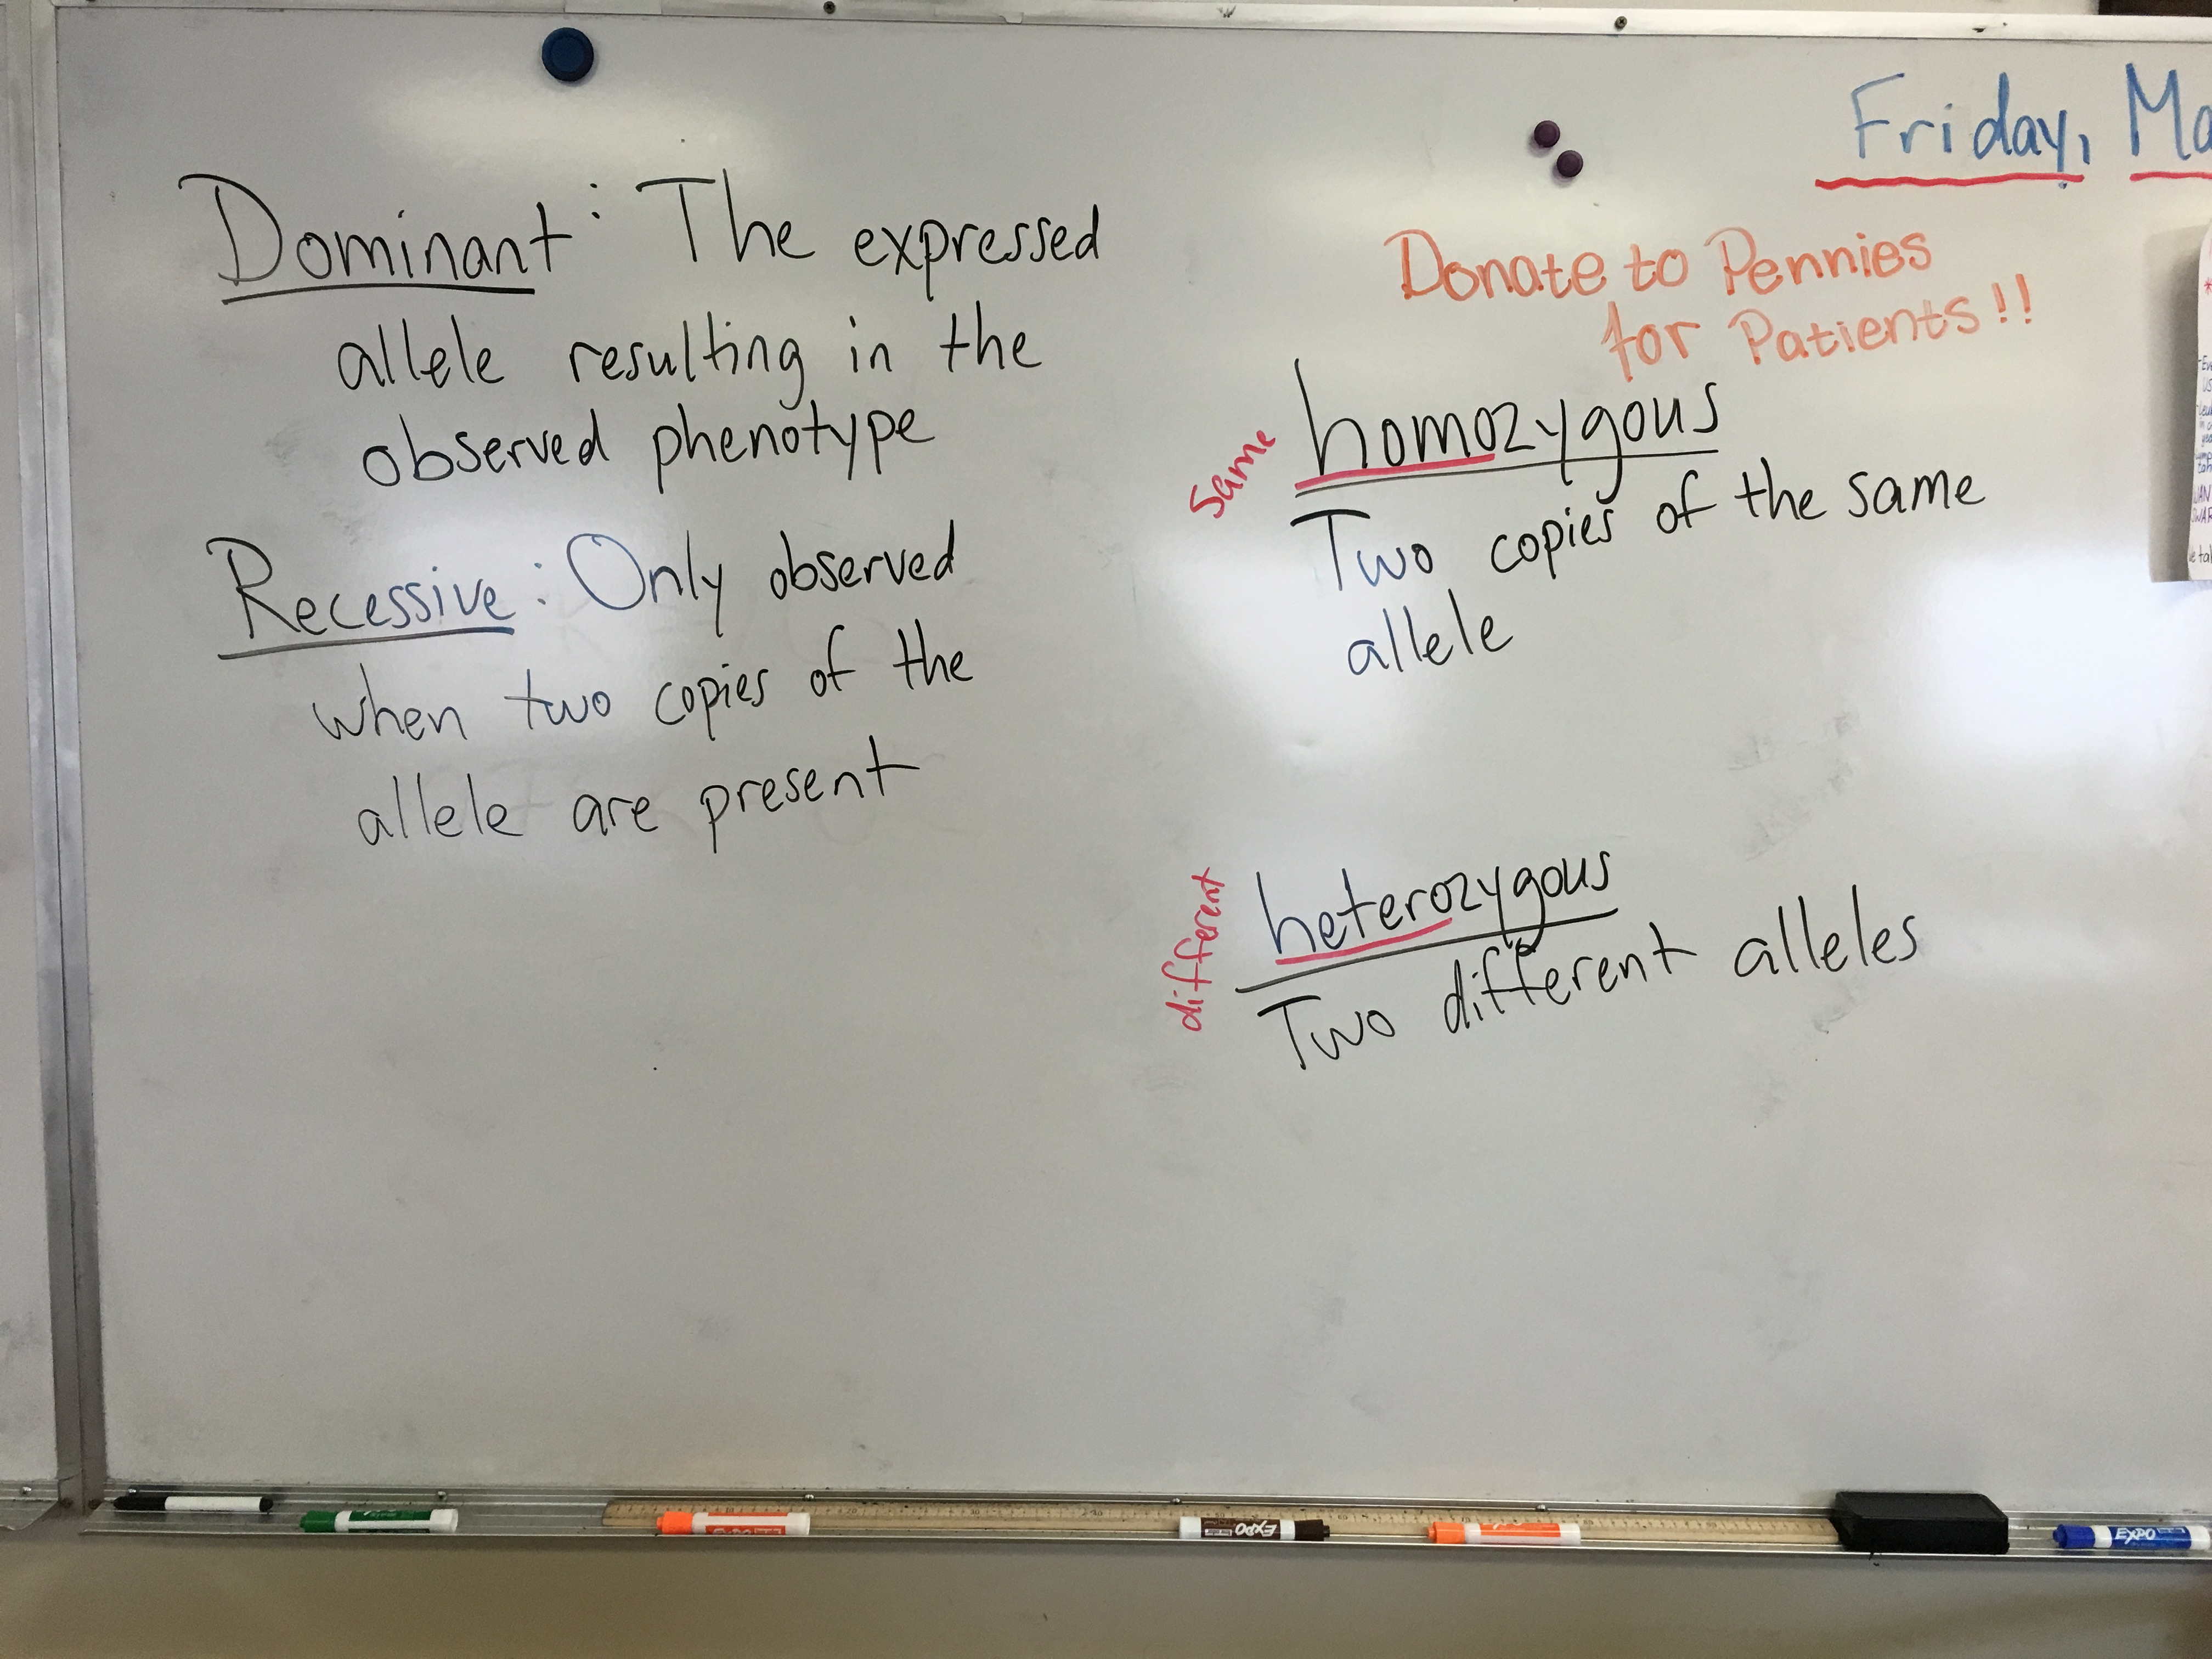 Dominant: The expressed
allele resulting in the
observed phenotype
Recessive: Only observed
when two copies of the
allele are present
Friday, Ma
Donate to Pennies
for Patients!!
same
homozygous
Two copies of the same
allele
different
heterozygous
Two different alleles
EXPO
EXPO